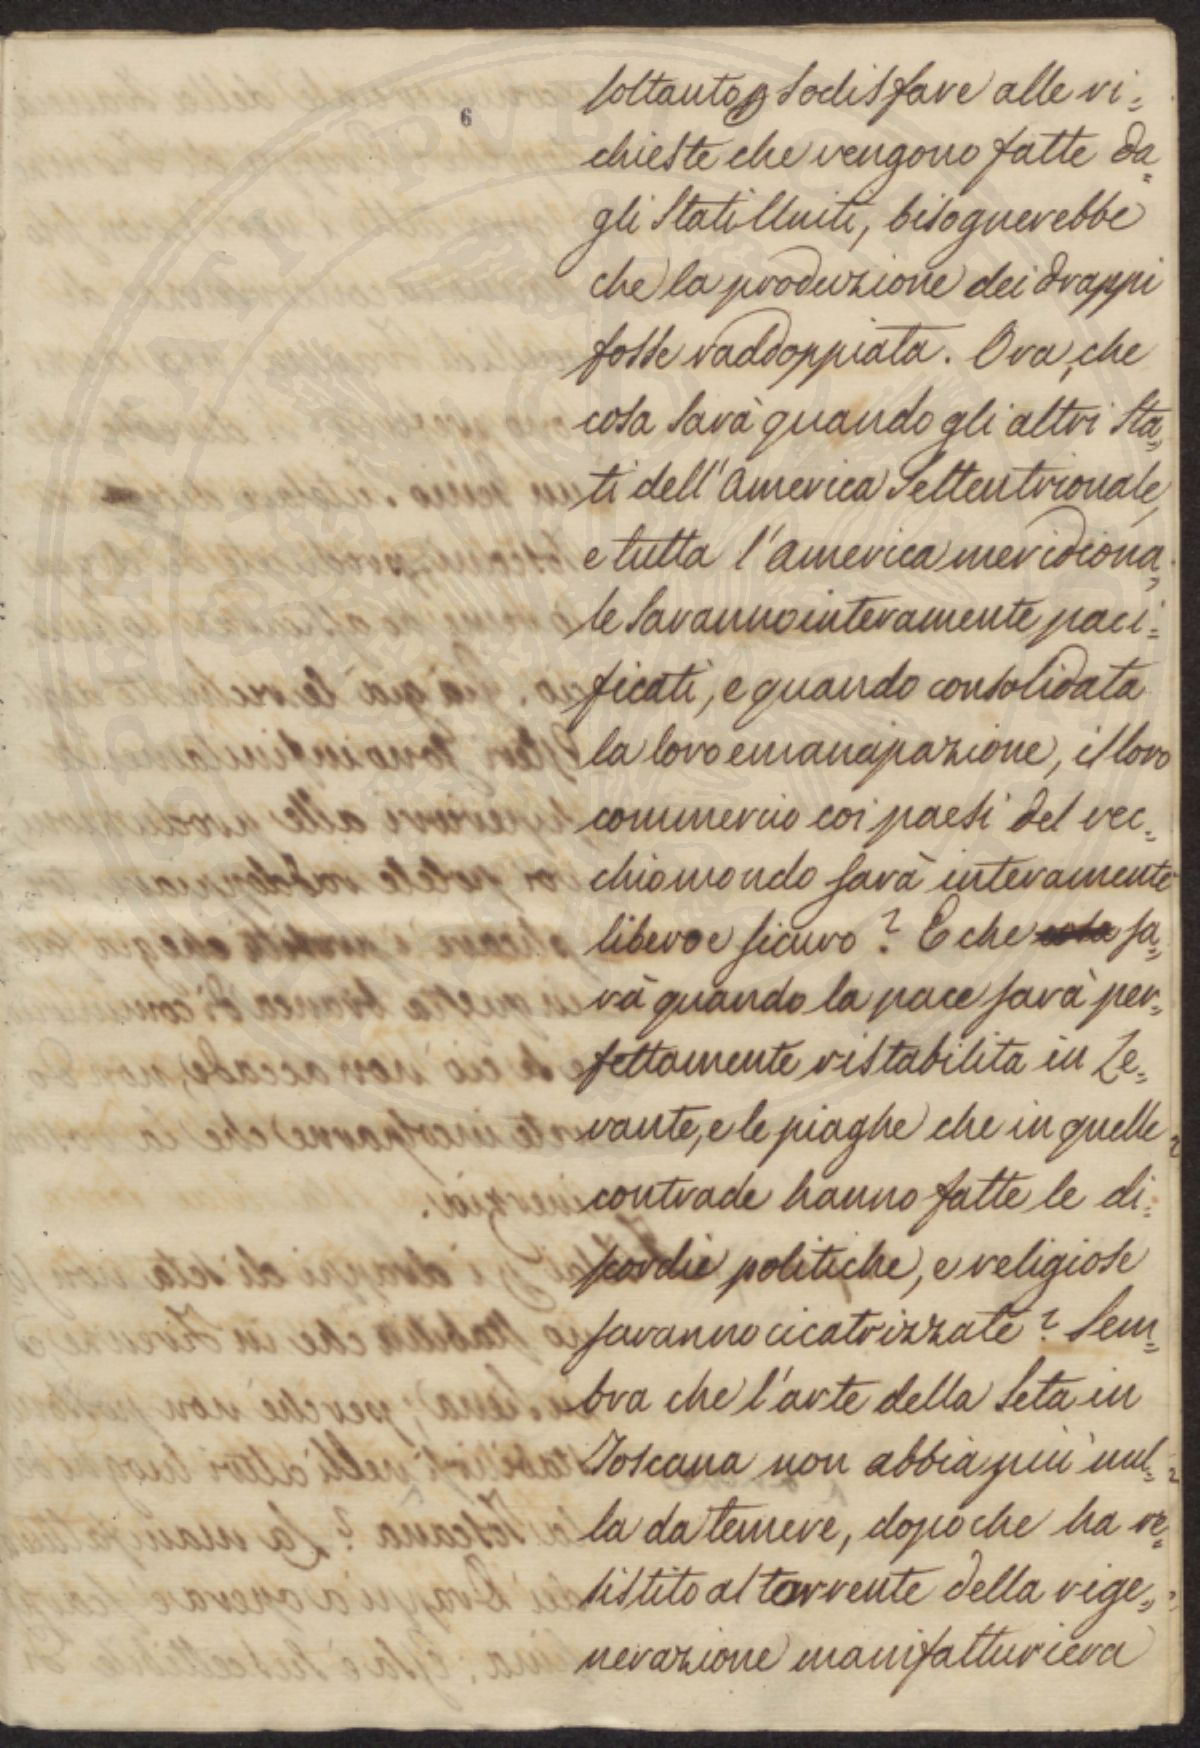 6
soltanto p sodisfare alle ri=
chieste che vengono fatte da=
gli Stati Uniti, bisognerebbe
che la produzione dei drappi
fosse raddoppiata. Ora, che
cosa sarà quando gli altri Sta=
ti dell'America Settentrionale,
e tutta l'America meridiona=
le saranno interamente paci=
ficati, e quando consolidata
la loro emancipazione, il loro
commercio coi paesi del vec=
chio mondo sarà interamente
libero e sicuro? E che cosa sa=
rà quando la pace sarà per=
fettamente ristabilita in Le=
vante, e le piaghe che in quelle
contrade hanno fatte le di=
scordie politiche, e religiose
saranno cicatrizzate? Sem=
bra che l'arte della Seta in
Toscana non abbia più nul=
la da temere, dopo che ha re=
sistito al torrente della rige=
nerazione manifatturiera